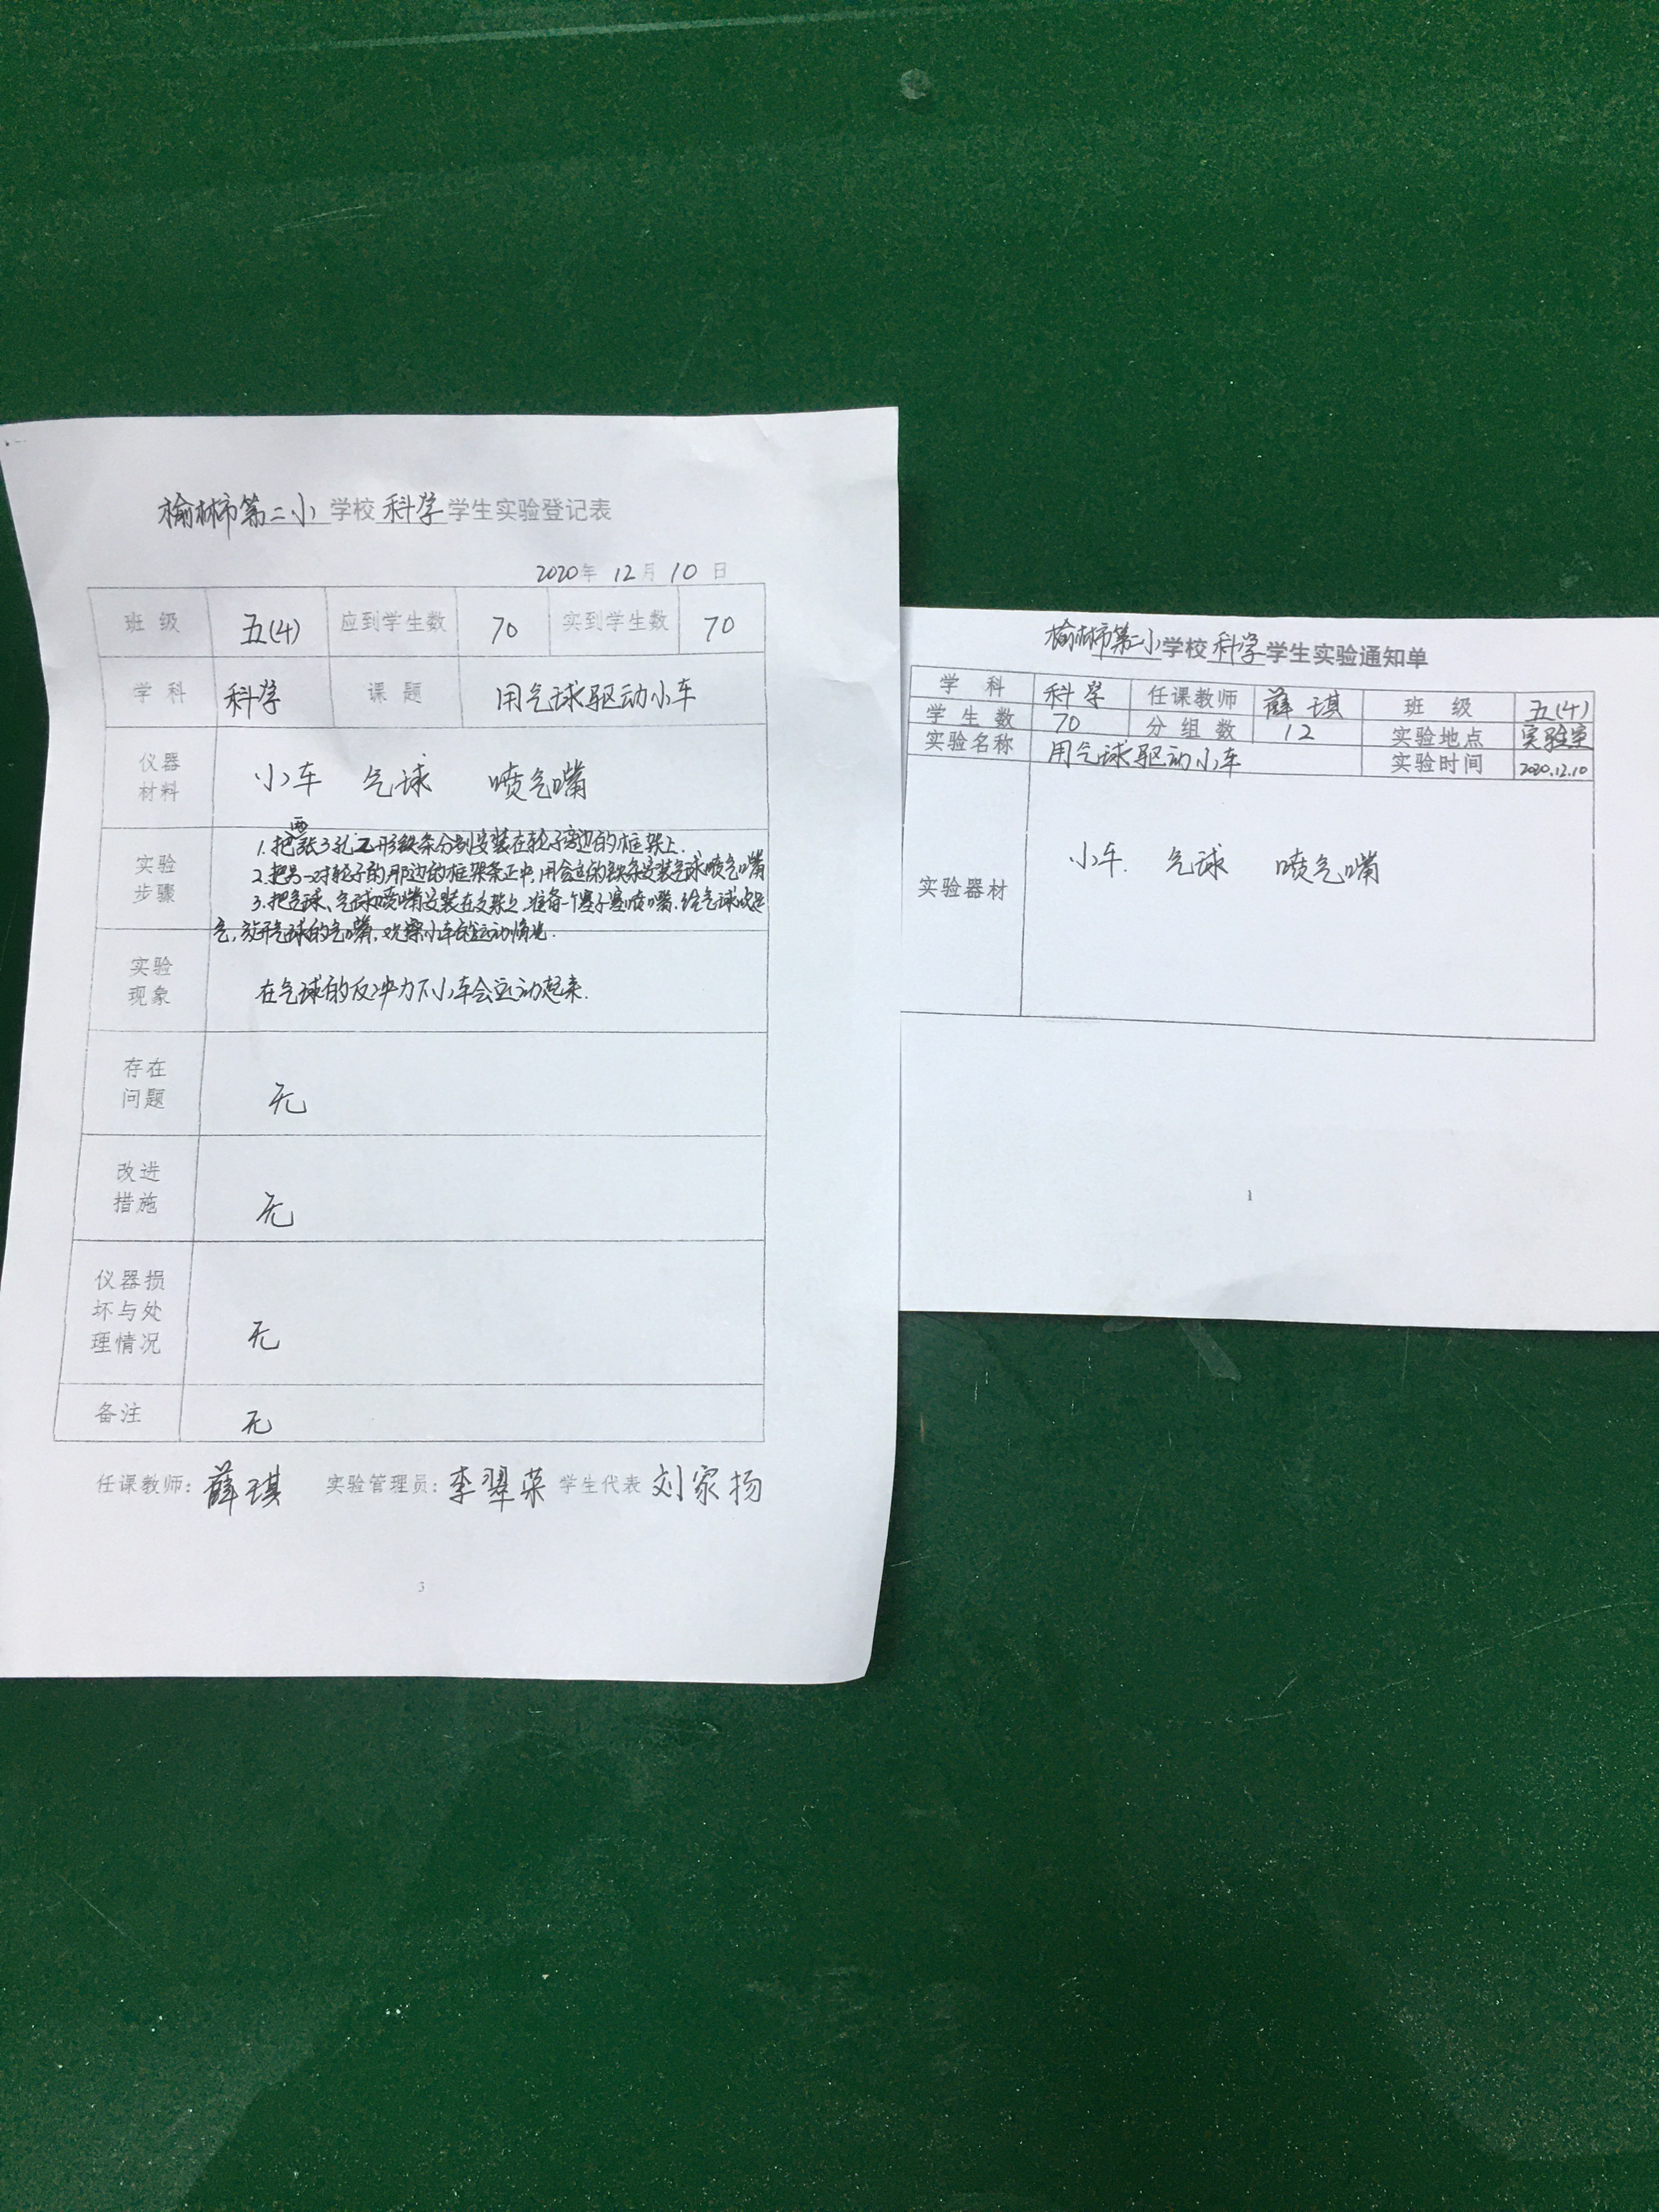 榆林市第二小学校科学学生实验登记表
2020年 12月 10日
班级 五(4) 应到学生数 70 实到学生数 70
学科 科学 课题 用气球驱动小车
仪器材料 小车 气球 喷气嘴
实验步骤
1.把两张3孔Z形铁条分别安装在轮子旁边的框架上.
2.把另一对轮子的那边的框架条正中,用合适的铁条安装气球喷气嘴
3.把气球、气球喷嘴安装在支架上.准备一个塞子塞喷嘴.给气球吹足
气,放开气球的气嘴.观察小车的运动情况.
实验现象 在气球的反冲力下小车会运动起来.
存在问题 无
改进措施 无
仪器损坏与处理情况 无
备注 无
任课教师:薛琪 实验管理员:李翠荣 学生代表 刘家扬
3
榆林市第二小学校科学学生实验通知单
学科 科学 任课教师 薛琪 班级 五(4)
学生数 70 分组数 12 实验地点 实验室
实验名称 用气球驱动小车 实验时间 2020.12.10
实验器材 小车. 气球 喷气嘴
1